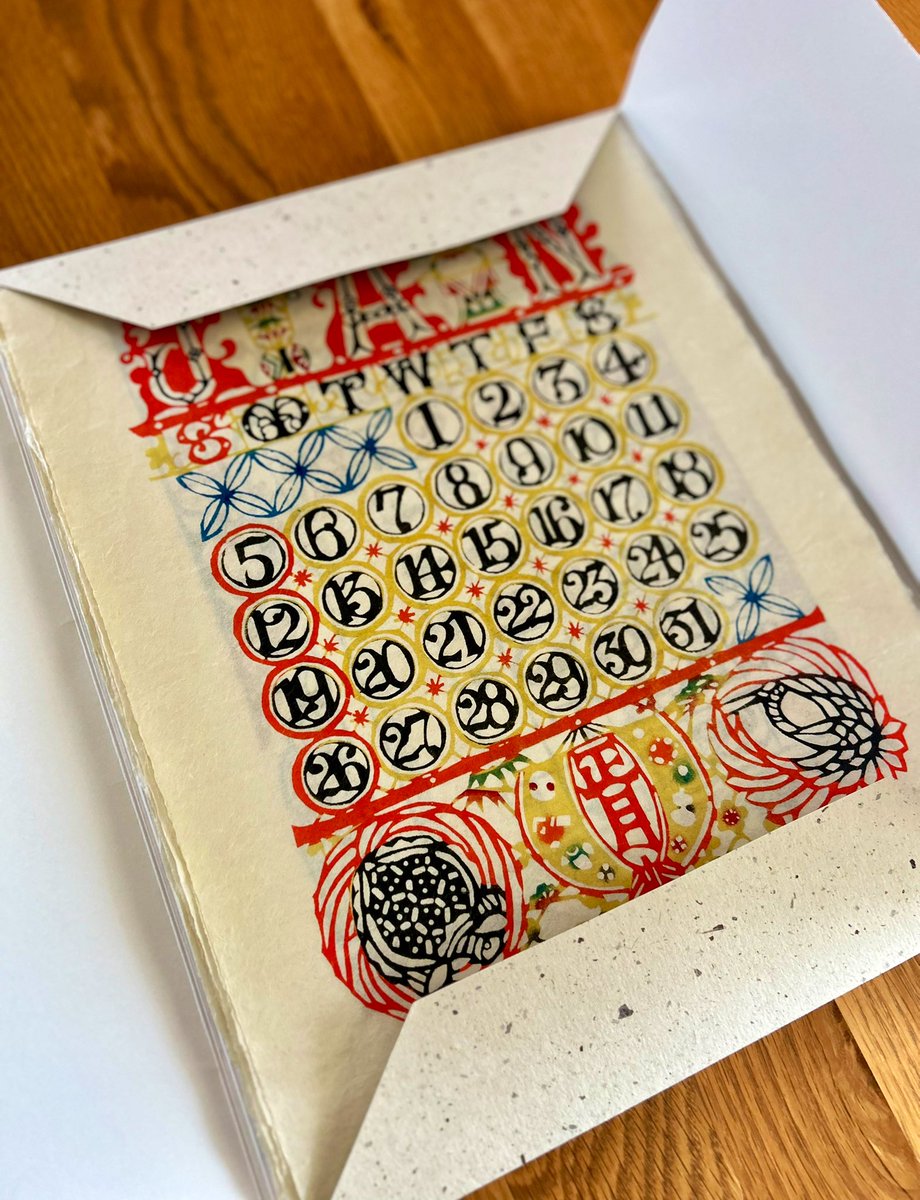 JAN
S M T W T F S
1 2 3 4
5 6 7 8 9 10 11
12 13 14 15 16 17 18
19 20 21 22 23 24 25
26 27 28 29 30 31
正月